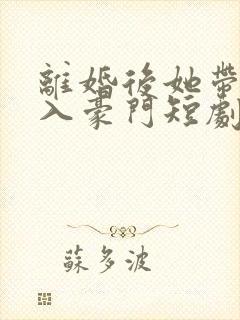 離婚後她帶
入豪門短劇
蘇多波